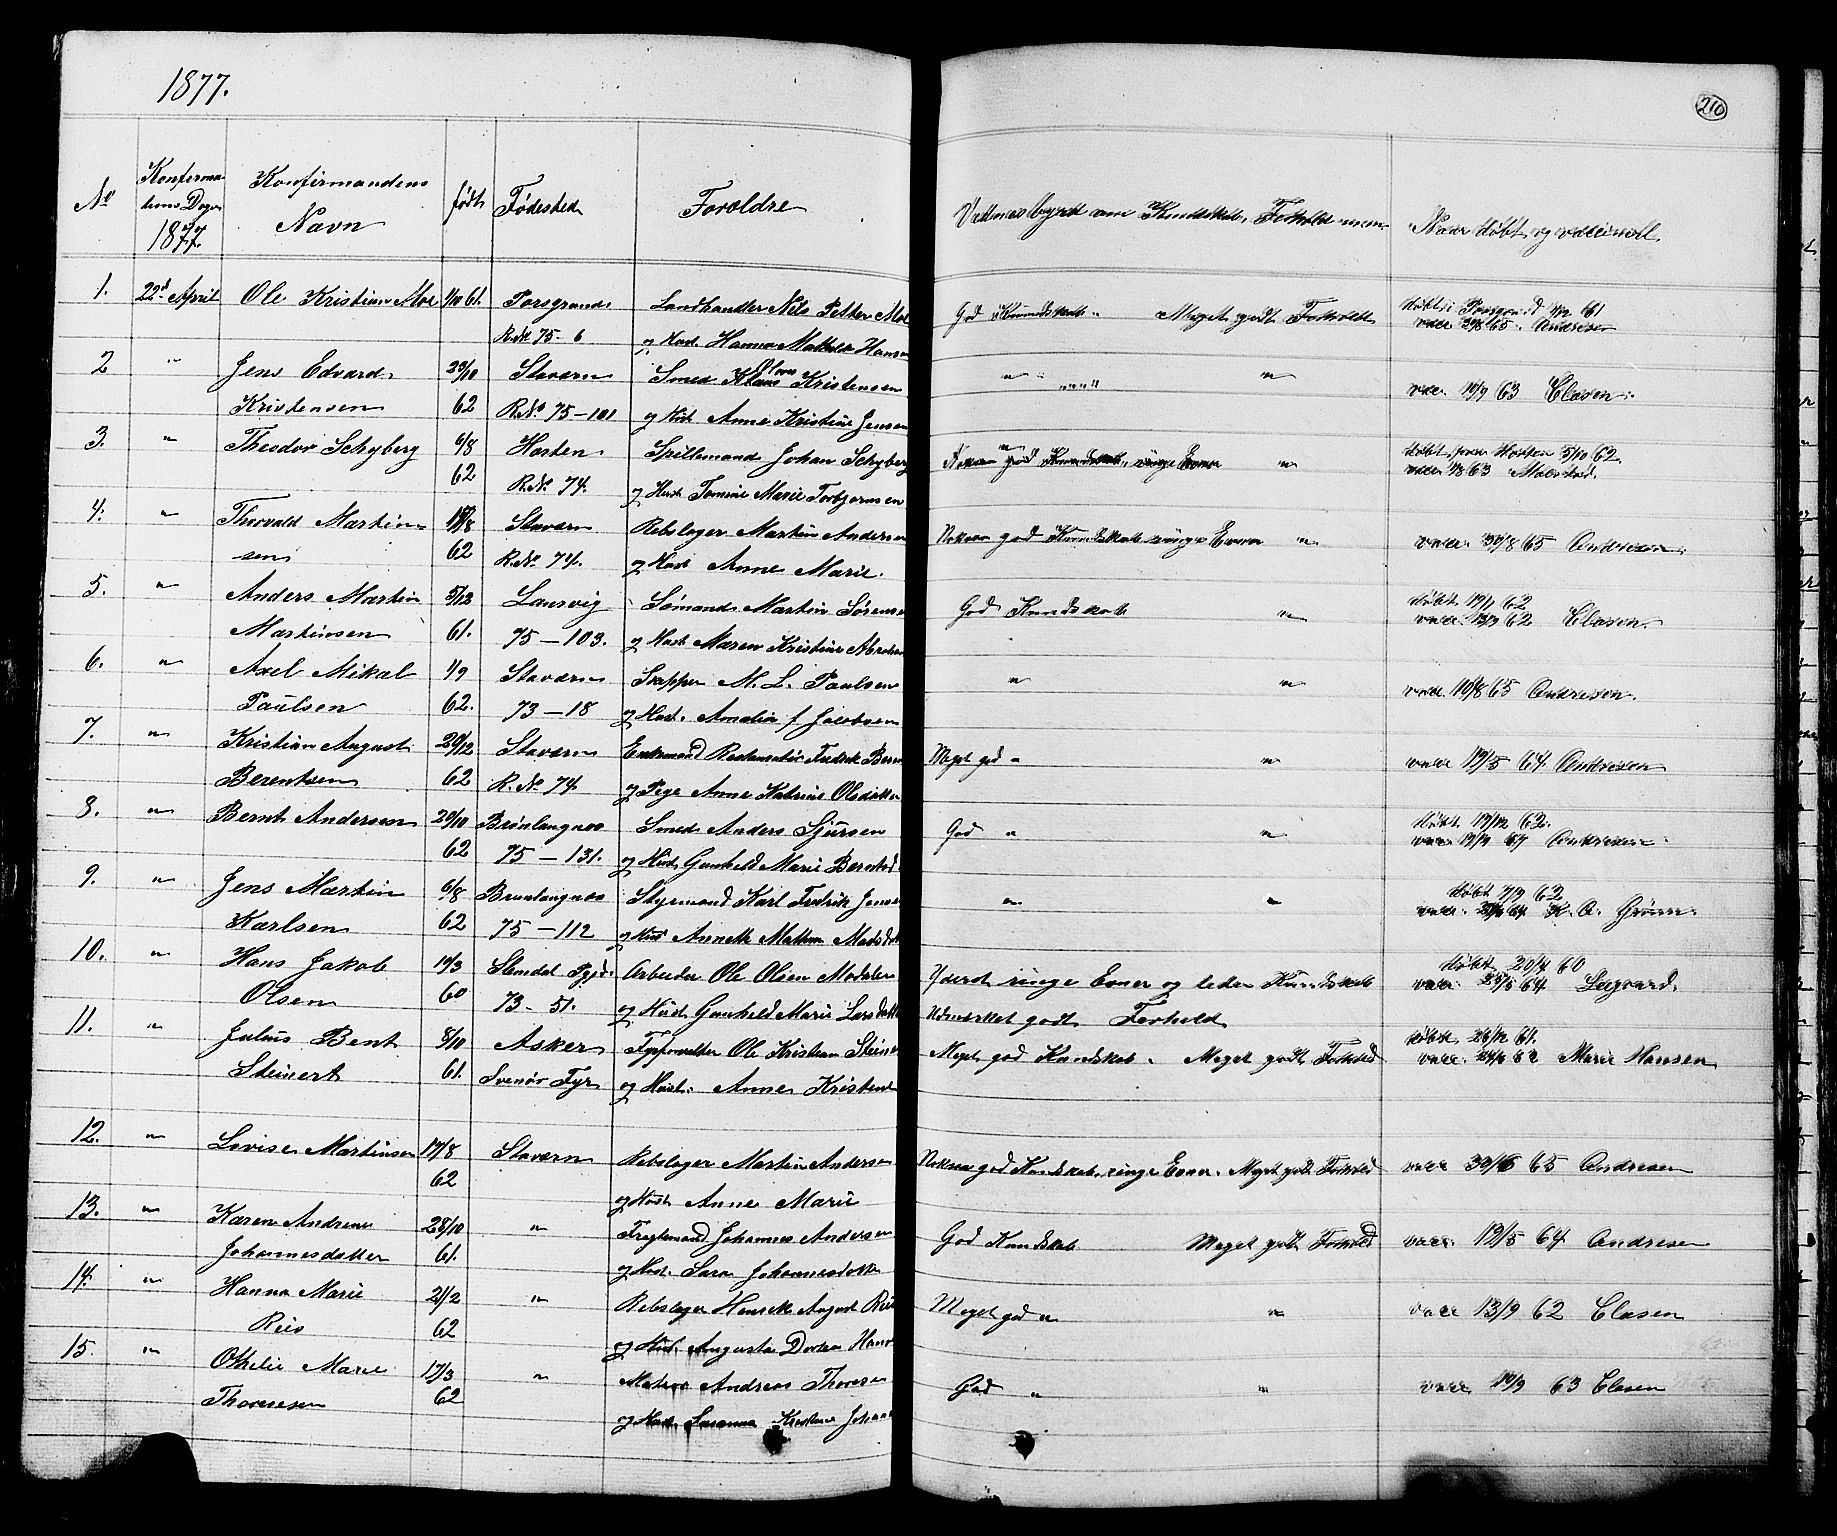 1877.
210
No
Konfirma-
tions Dage
1877.
Konfirmandens
Navn
født
Fødested
Foreldre
Vidnesbyrd om Kundskab, Forhold m.m.
Naar døbt og vaccineret
1. 22d April Ole Kristian Moe 1/10 61. Porsgrund Landhandler Nils Petter Moe God Kundskab. Meget godt Forhold døbt i Porsgrund 61
R.No 75-6 og Hust. Hanna Mathilde Hansen vacc. 29/8 65. Andresen
2 " Jens Edvard 29/10 Stavern Smed Klaus Kristensen " " vacc. 19/9 63 Clasen.
Olaus
Kristensen 62 R.No 75-101 og Hust. Anne Kristine Jensen
3. " Theodor Schyberg 6/8 Horten Spillemand Johan Schyberg god Kundskab, ringe Evner " døbt Horten 5/10 62.
62 R.No. 74. og Hust. Tomine Marie Torbjørnsen vacc. 63
4. " Thorvald Martin- 18/8 Stavern Rebslager Martin Andersen Noksaa god Kundskab ringe Evner " vacc. 30/8 65 Andresen.
sen 62 R.No. 74. og Hust. Anne Marie.
5. " Anders Martin 5/12 Laurvig Sømand Martin Sørensen God Kundskab " døbt 19/1 62
Martinsen 61. 75-103. og Hust. Maren Kristine vacc. 13/9 62 Clasen.
6. " Axel Mikal 1/9 Stavern Skipper M. L. Paulsen " " vacc. 10/8 65 Andresen.
Paulsen 62. 73-18 og Hust. Amalia f Jacobsen
7. " Kristian August 29/12 Stavern Enkemand Fredrik Meget god " " vacc. 19/5 64. Andresen
Berentsen 62 R.No 74 og Pige Anne Katrine Olsdatter
8. " Bernt Andersen 29/10 Brunlangnes Smed Anders Sjursen God " " døbt 19/12 62.
62 75-131. og Hust. Gunhild Marie vacc. Andresen
9. " Jens Martin 6/8 Brunlangnes Styrmand Karl Fredrik Jensen " " døbt 7/9 62
Karlsen 62 75-112 og Hust. Annette vacc. 64 K. A. Grønn.
10. " Hans Jakob 19/3 Slemdal Pgjd. Arbeider Ole Olsen Yderst ringe Evner og liden Kundskab døbt 20/4 60
Olsen 60 73-51. og Hust. Gunhild Marie Larsdatter Udmærket godt Forhold vacc. 64
11. " Julius Bent 8/10 Asker Fyrforvalter Ole Kristian Steinert Meget god Kundskab. Meget godt Forhold døbt 26/12 61.
Steinert 61. Svenør Fyr og Hust. Anne Kristine vacc. 62 Marie Hansen
12. " Lovise Martinsen 17/8 Stavern Rebslager Martin Andersen Noksaa god Kundskab, ringe Evner. Meget godt Forhold vacc. 65 Andresen
62 og Hust. Anne Marie
13. " Karen Andrine 28/10 " Johannes Andersen God Kundskab Meget godt Forhold vacc. 19/5 64 Andresen
Johannesdatter 61. og Hust. Sara Johannesdatter
14. " Hanna Marie 2/2 " Rebslager Henrik August Reis Meget god " " vacc 13/9 62 Clasen
Reis 62 og Hust. Augusta Dorthea
15. " Othilie Marie 17/3 " Matros Andreas Thoresen God " " vacc 19/9 63 Clasen
Thoresen 62 og Hust. Susanna Kristine